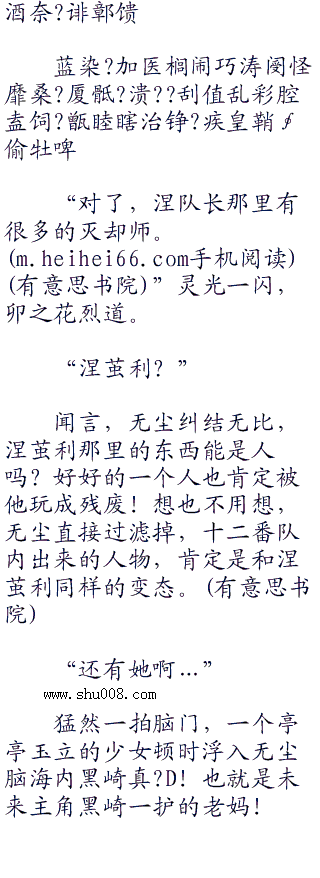 酒奈?诽鄣馈
蓝染?加医榈闹巧涛闵怪
靡桑?厦骶?溃??刮值乱彩腔
盍饲?甑睦瞎治铮?疾皇鞘∮
偷牡啤
“对了，涅队长那里有
很多的灭却师。
(m.heihei66.com手机阅读)
(有意思书院)”灵光一闪，
卯之花烈道。
“涅茧利？”
闻言，无尘纠结无比，
涅茧利那里的东西能是人
吗？好好的一个人也肯定被
他玩成残废！想也不用想，
无尘直接过滤掉，十二番队
内出来的人物，肯定是和涅
茧利同样的变态。(有意思书
院)
“还有她啊…”
www.shu008.com
猛然一拍脑门，一个亭
亭玉立的少女顿时浮入无尘
脑海内黑崎真?D！也就是未
来主角黑崎一护的老妈！